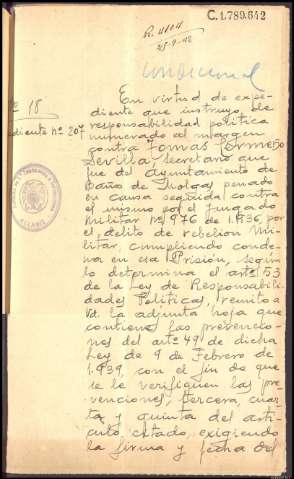 C.1.789.642
R. 4104
25-9-42
Condicional
Nº 18
diente nº 207
En virtud de expe-
diente que instruyo de
responsabilidad política
numerado al margen
contra Tomas
Sevilla, Secretario que
fue del Ayuntamiento de
Baños de Molgas penado
en causa seguida contra
el mismo por el Juzgado
Militar nº 976 de 1.936, por
el delito de rebelion Mi-
litar, cumpliendo conde-
na en esa Prisión, según
lo determina el artº 53
de la Ley de Responsabili-
dades Políticas, remito a
Vd. la adjunta hoja que
contiene las prevencio-
nes del artº 49 de dicha
Ley de 9 de Febrero de
1.939, con el fin de que
se le verifiquen las pre-
venciones tercera, cuar-
ta y quinta del artí-
culo citado, exigiendo
la firma y fecha del